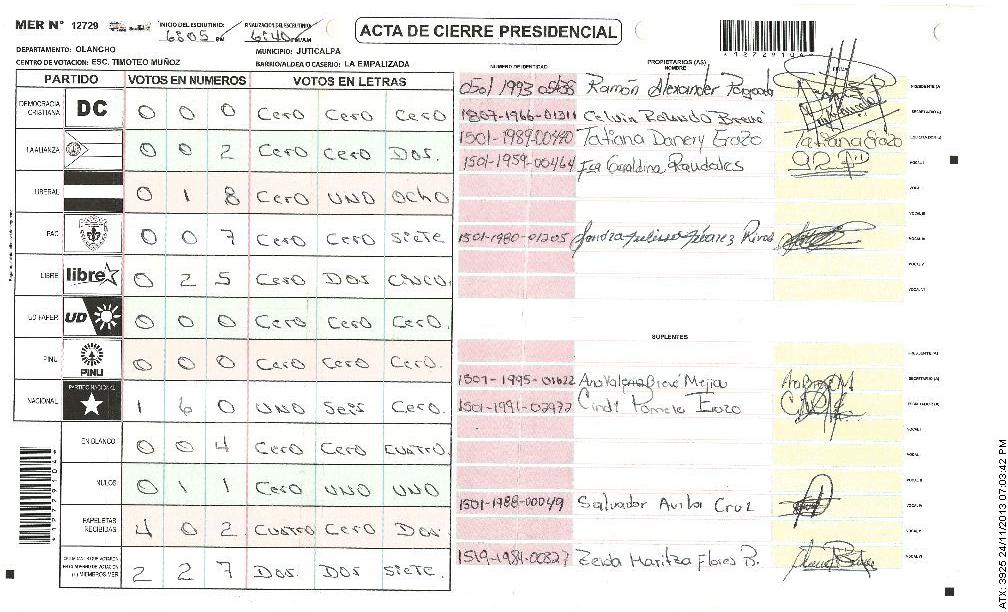 MER N° 12729 INICIO DEL ESCRUTINIO: 6:05 PM FINALIZACION DEL ESCRUTINIO: 6:40 PM/AM
ACTA DE CIERRE PRESIDENCIAL
*12729104*
DEPARTAMENTO: OLANCHO MUNICIPIO: JUTICALPA
CENTRO DE VOTACION: ESC. TIMOTEO MUÑOZ BARRIO/ALDEA O CASERIO: LA EMPALIZADA
PARTIDO VOTOS EN NUMEROS VOTOS EN LETRAS
DEMOCRACIA CRISTIANA DC 0 0 0 Cero Cero Cero
LA ALIANZA 0 0 2 Cero Cero Dos.
LIBERAL 0 1 8 Cero UNO OchO
PAC 0 0 7 Cero Cero Siete
LIBRE libre 0 2 5 Cero Dos CINCO.
UD FAPER UD 0 0 0 Cero Cero Cero.
PINU PINU 0 0 0 Cero Cero Cero.
NACIONAL PARTIDO NACIONAL 1 6 0 UNO Seis Cero.
EN BLANCO 0 0 4 Cero Cero CUATRO.
NULOS 0 1 1 Cero UNO UNO
PAPELETAS RECIBIDAS 4 0 2 CUATRO Cero Dos.
2 2 7 Dos. Dos Siete.
NUMERO DE IDENTIDAD PROPIETARIOS (AS) NOMBRE FIRMA
0501 1993 Ramón Alexander PRESIDENTE (A)
1807-1966-01311 Celvin Rolando Breve SECRETARIO (A)
1501-1989-00440 Tatiana Danery Erazo Tatiana Erazo ESCRUTADOR (A)
1501-1959-00464 Fca Geraldina Raudales VOCAL I
VOCAL II
VOCAL III
1501-1980-01205 Rivas VOCAL IV
VOCAL V
VOCAL VI
SUPLENTES
PRESIDENTE (A)
1501-1995-01622 Ana Valeria Brevé Mejia SECRETARIO (A)
1501-1991-02972 Cindi Pamela Erazo ESCRUTADOR (A)
VOCAL I
VOCAL II
VOCAL III
1501-1988-00049 Salvador Avila Cruz VOCAL IV
VOCAL V
1519-1984-00327 Zeida Maritza Flores B. VOCAL VI
*12729104*
ATX: 3925 24/11/2013 07:03:42 PM